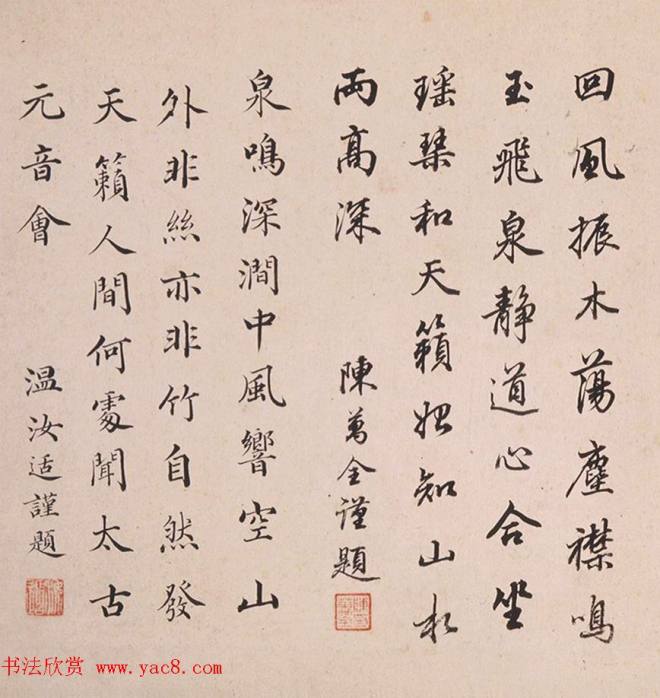 回風振木蕩塵襟鳴
玉飛泉静道心合坐
瑶琹和天籟始知山水
兩高深
陳萬全谨題
泉鳴深澗中風響空山
外非絲亦非竹自然發
天籟人間何處聞太古
元音會
温汝适謹題
书法欣赏 www.yac8.com